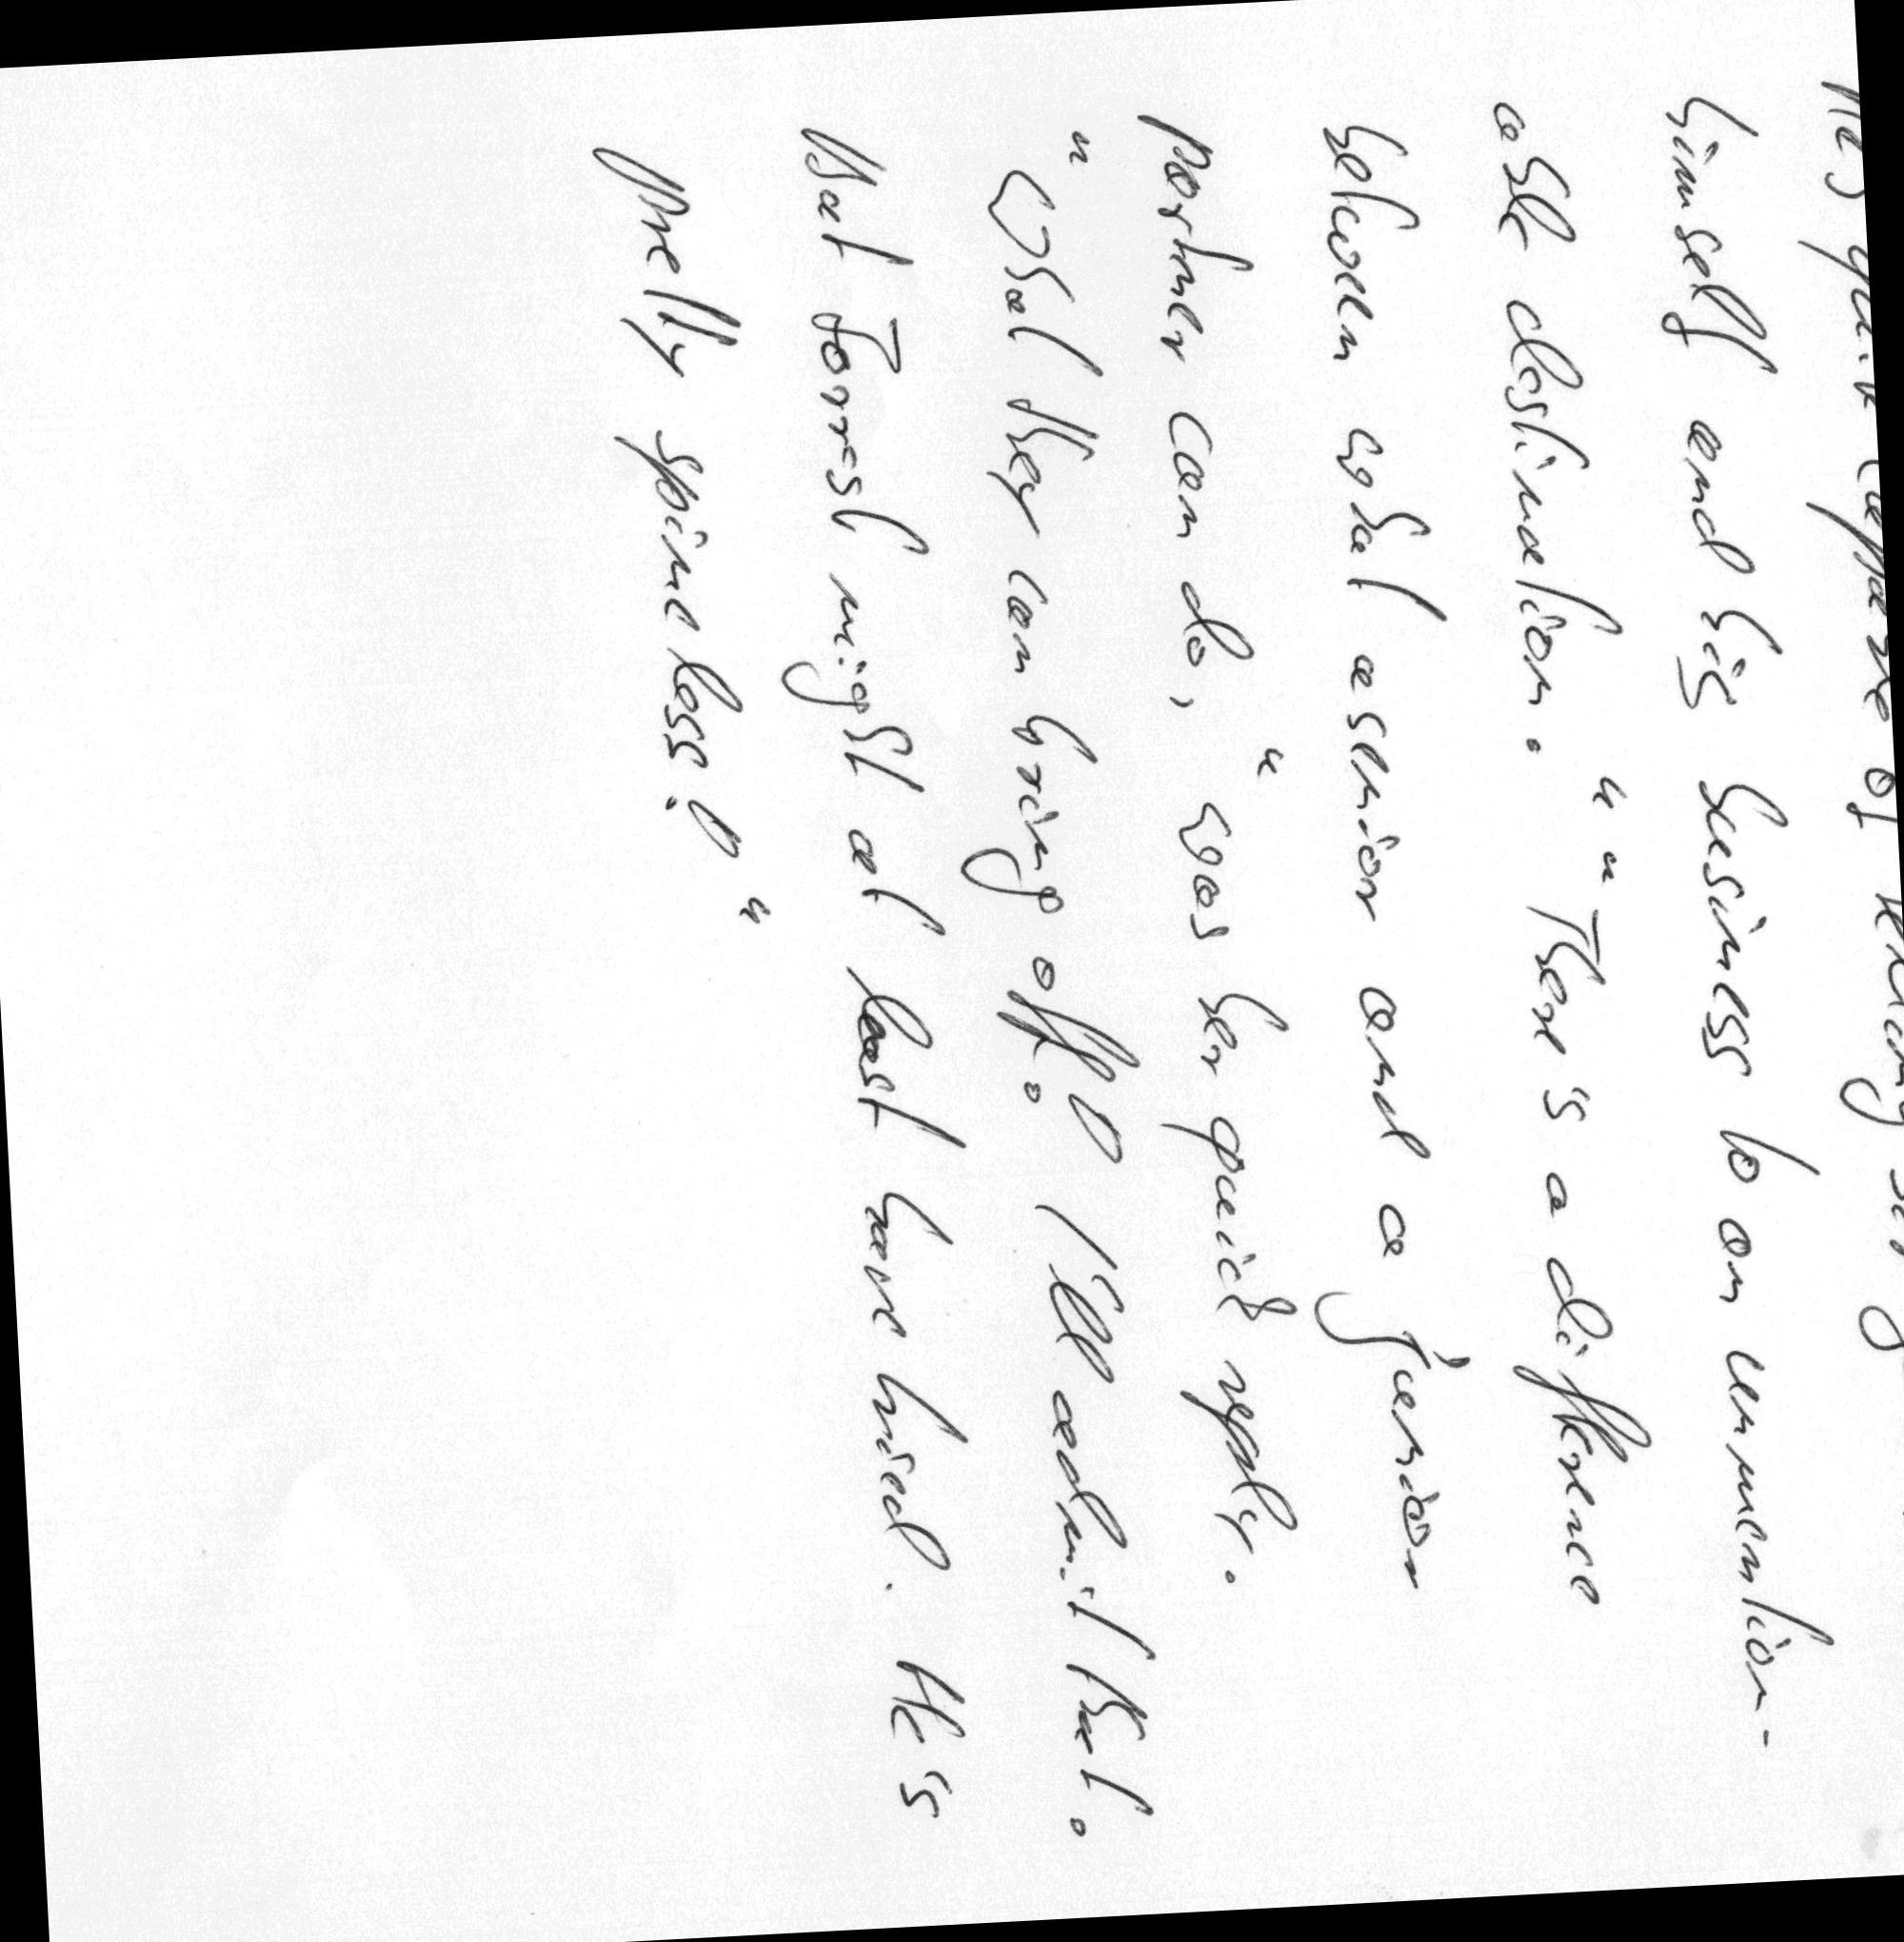 quite capable of
himself and his business to an unmention-
able destination." "There's a difference
between what a senior and a junior
partner can do," was her quick reply.
"What they can bring off! I'll admit that.
But Forrest might at least have tried. He's
pretty spineless!"